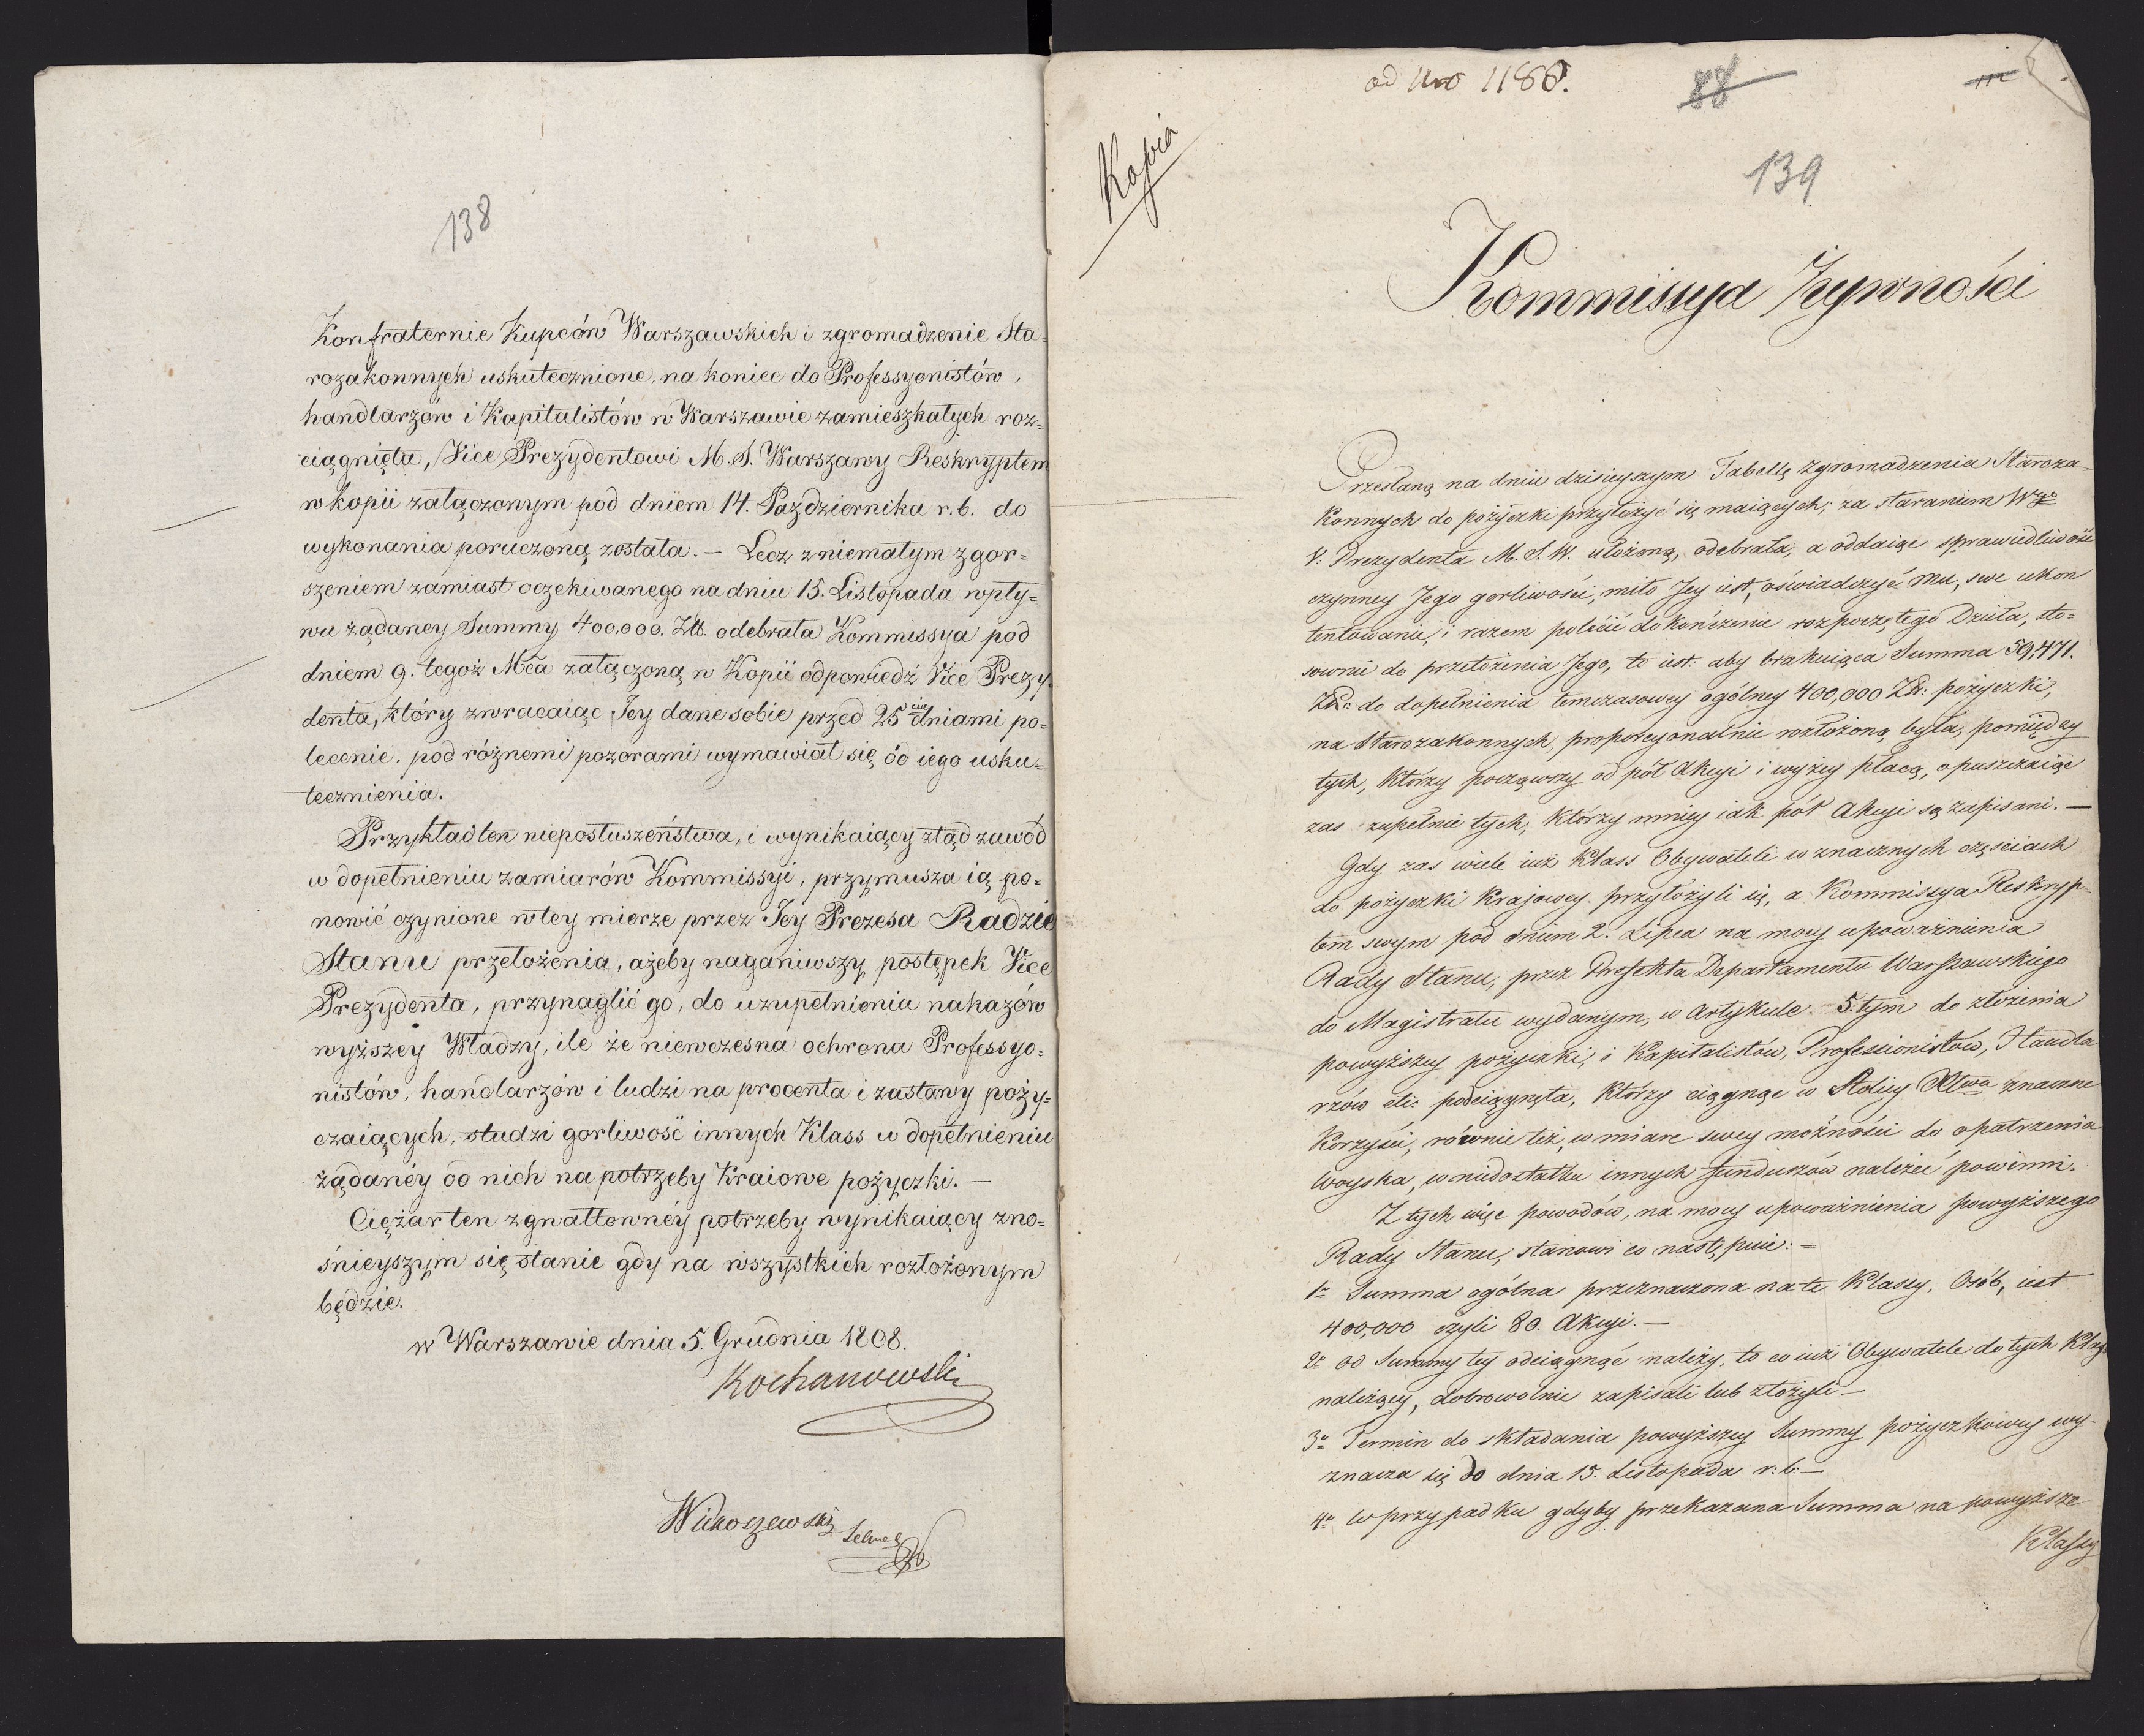 138
Konfraternie Kupców Warszawskich i zgromadzenie Sta=
rozakonnych uskutecznione, na koniec do Professyonistów,
handlarzów i Kapitalistów w Warszawie zamieszkałych roz=
ciągnięta, Vice Prezydentowi M. S. Warszawy Reskryptem
w kopii załączonym pod dniem 14. Pazdziernika r. b. do
wykonania poruczoną została. — Lecz z niemałym zgor=
szeniem zamiast oczekiwanego na dniu 15. Listopada wpły=
wu żądaney Summy 400.000. Złł. odebrała Kommissya pod
dniem 9. tegoż Mca załączoną w Kopii odpowiedź Vice Prezy=
denta, który zwracaiąc Jey dane sobie przed 25 ciu dniami po=
lecenie, pod różnemi pozorami wymawiał się od iego usku=
tecznienia.
Przykład ten nieposłuszeństwa, i wynikaiący ztąd zawód
w dopełnieniu zamiarów Kommissyi, przymusza ią po=
nowić czynione w tey mierze przez Jey Prezesa Radzie
Stanu przełożenia, ażeby naganiwszy postępek Vice
Prezydenta, przynaglić go, do uzupełnienia nakazów
wyższey Władzy, ile że niewczesna ochrona Professyo=
nistów, handlarzów i ludzi na procenta i zastawy poży=
czaiących, studzi gorliwość innych Klass w dopełnieniu
żądanéy od nich na potrzeby Kraiowe pożyczki. —
Ciężar ten z gwałtownéy potrzeby wynikaiący zno=
śnieyszym się stanie gdy na wszystkich rozłożonym
będzie.
w Warszawie dnia 5. Grudnia 1808.
Kochanowski
od Nro 1186.
88
139
Kopia
Kommissya Żywności
Przesłaną na dniu dzisieyszym Tabellę Zgromadzenia Staroza=
konnych do pożyczki przyłożyć się maiących, za staraniem Wgo
V: Prezydenta M. S. W. ułożoną, odebrała, a oddaiąc sprawiedliwość
czynney Jego gorliwości, miło Jey iest, oświadczyć Mu, swe ukon
tentowanie, i razem polecić dokończenie rozpoczętego Dzieła, sto=
sownie do przełożenia Jego, to iest: aby brakuiąca Summa 59,471.
Złł: do dopełnienia temczasowey ogólney 400,000 Złł: pożyczki,
na Starozakonnych, proporcyonalnie rozłożoną była, pomiędzy
tych, którzy począwszy od pół Akcyi i wyżey płacą, opuszczaiąc
zas zupełnie tych, którzy mniey iak pół Akcyi są zapisani. —
Gdy zas wiele iuż Klass Obywateli w znacznych częsciach
do pożyczki Krajowey przyłożyli się, a Kommissya Reskryp=
tem swym pod dniem 2. Lipca na mocy upoważnienia
Rady Stanu, przez Prefekta Departamentu Warszawskiego
do Magistratu wydanym, w Artykule 5.tym do złożenia
powyższey pożyczki, i Kapitalistów, Professionistów, Handla
rzów etc: pociągnęła, którzy ciągnąc w Stolicy Xtwa znaczne
Korzyści, równie też w miarę swey możności do opatrzenia
Woyska, w niedostatku innych funduszów należeć powinni.
Z tych więc powodów, na mocy upoważnienia powyższego
Rady Stanu, stanowi co następuie: —
1o Summa ogólna przeznaczona na te Klassy, Osób, iest
400,000 czyli 80. Akcyi. —
2o od Summy tey odciągnąć należy, to co iuż Obywatele do tych Klass
należący, dobrowolnie zapisali lub złożyli —
3o Termin do składania powyższey Summy pożyczkowey wy=
znacza się do dnia 15. Listopada r: b: —
4o w przypadku gdyby przekazana Summa na powyższe
Klassy